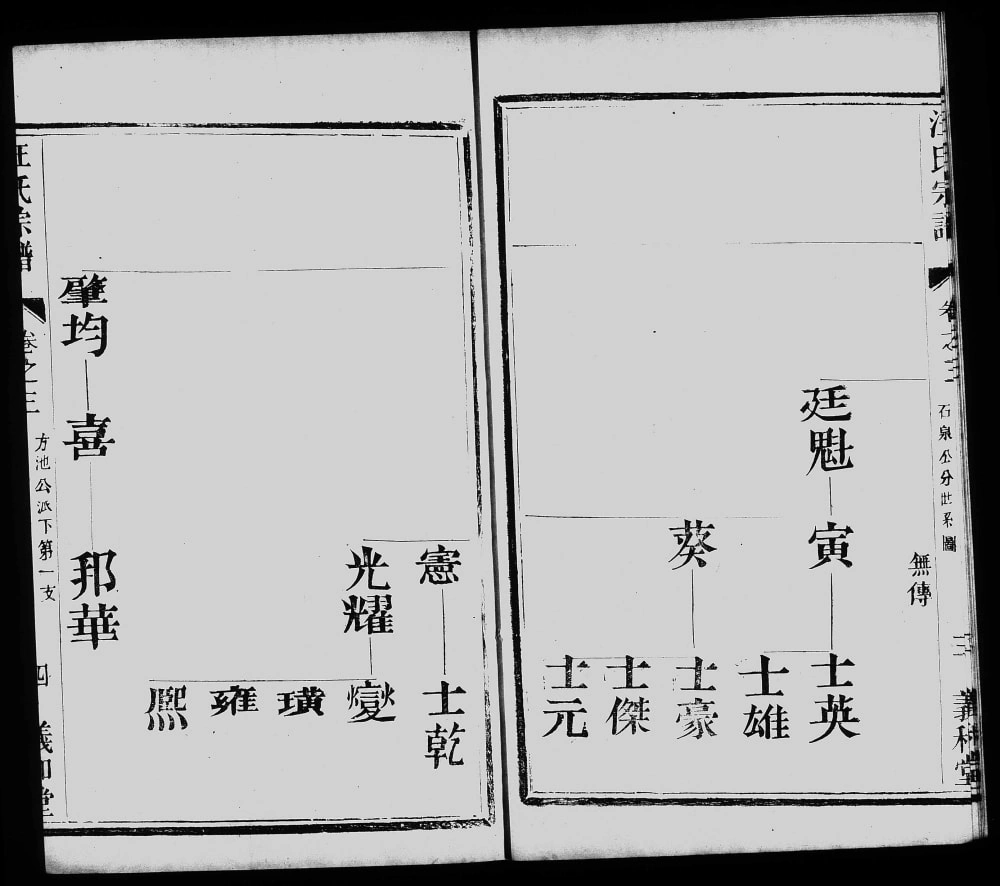 汪氏宗譜
卷之三
石泉公分世系圖
三
義和堂
無傳
廷魁
寅
士英
士雄
葵
士豪
士傑
士元
憲
士乾
光耀
燮
璜
雍
熈
肇均
喜
邦華
汪氏宗譜
卷之三
方池公派下第一支
四
義和堂